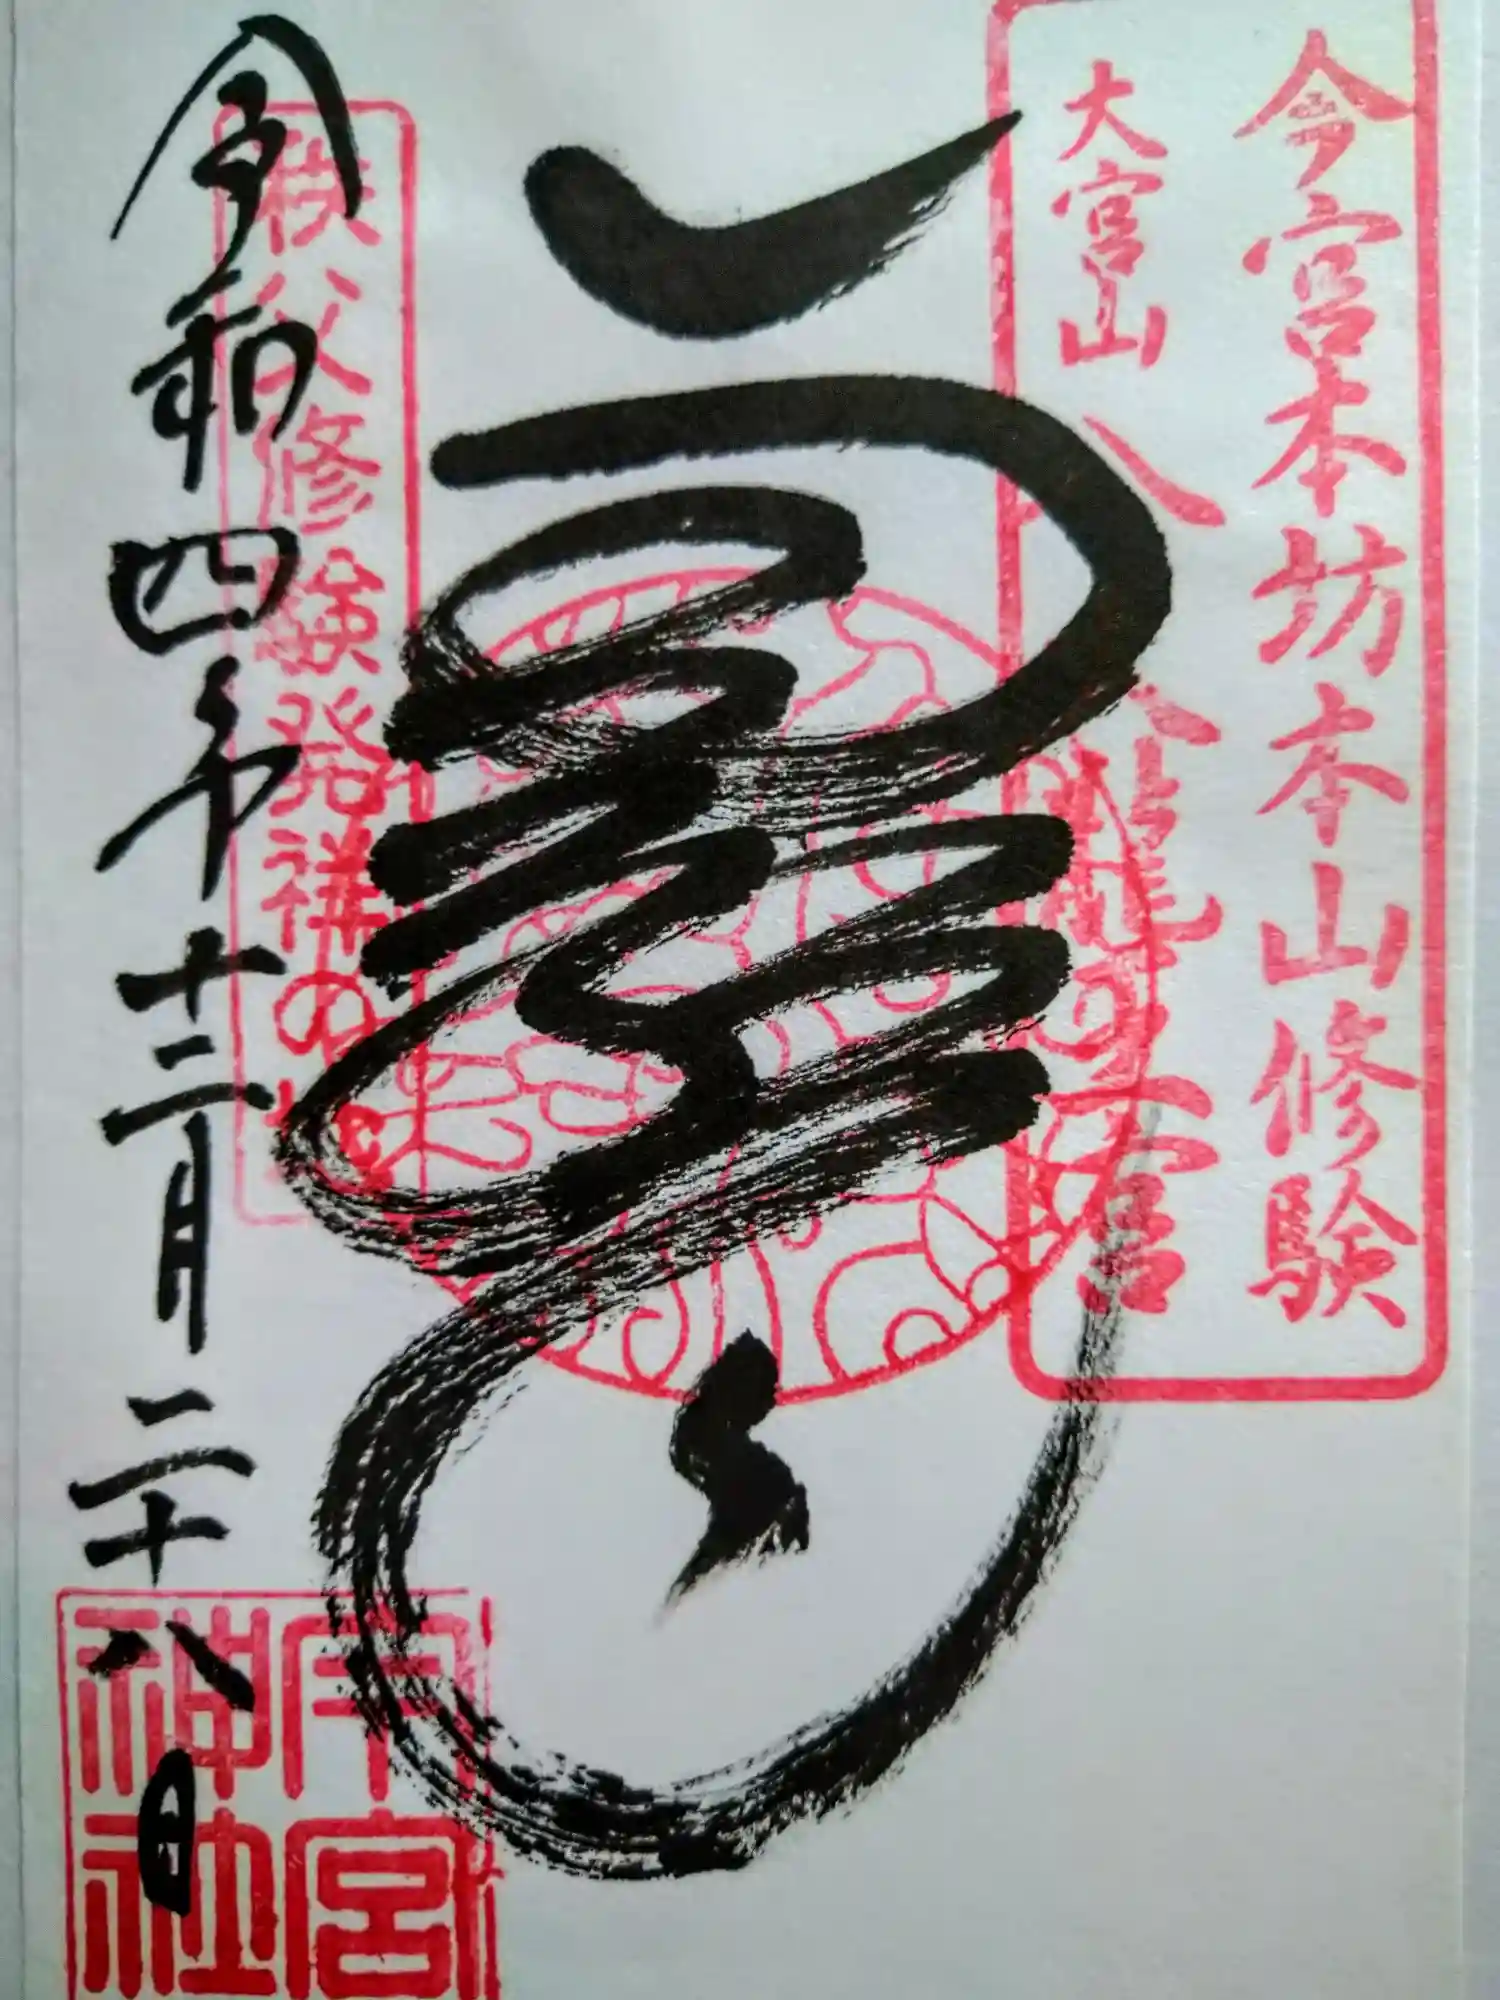 今宮本坊本山修験
大宮山
八大龍王宮
秩父修験発祥の地
令和四年十二月二十八日
今宮
神社